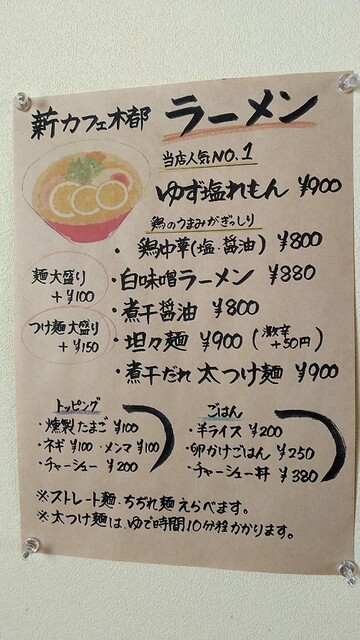 新カフェ木都 ラーメン
当店人気NO.1
ゆず塩れもん ¥900
鶏のうまみがぎっしり
・鶏中華(塩・醤油) ¥800
・白味噌ラーメン ¥880
・煮干醤油 ¥800
・坦々麺 ¥900 (激辛+50円)
・煮干だれ 太つけ麺 ¥900
麺大盛り
+¥100
つけ麺大盛り
+¥150
トッピング
・燻製たまご ¥100
・ネギ ¥100 ・メンマ ¥100
・チャーシュー ¥200
ごはん
・半ライス ¥200
・卵かけごはん ¥250
・チャーシュー丼 ¥380
※ストレート麺・ちぢれ麺えらべます。
※太つけ麺は、ゆで時間10分程かかります。